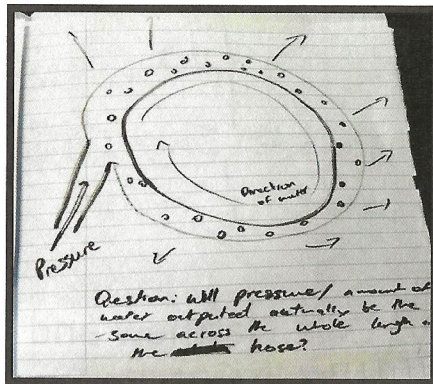 Direction
of water
Pressure
Question: will pressure/amount of
water outputed actually be the
same across the whole length
the hose?